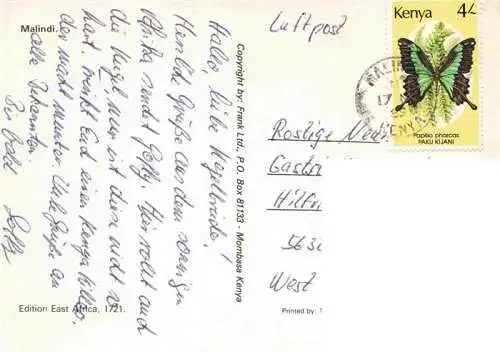 Malindi.
Hallo, liebe Kegelbrüder!
Herzl. Grüße aus dem sonnigen
Afrika sendet Golly. Hier rollt auch
die Kugel, nur ist diese nicht so
hart. Trinkt mal einen Kenya Killer,
der macht munter. Viele Grüße an
alle Bekannten.
Bis bald
Edition East Africa, 1721.
Copyright by: Frank Ltd., P.O. Box 81133 - Mombasa Kenya
Printed by:
Luftpost
Kenya 4/-
Papilio phorcas
PAKU KIJANI
MALIN
17
KENY
Rostige
Gastr
Hilf
563
West